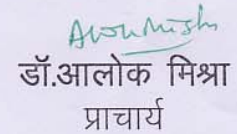 Alok Mishra
डॉ.आलोक मिश्रा
प्राचार्य